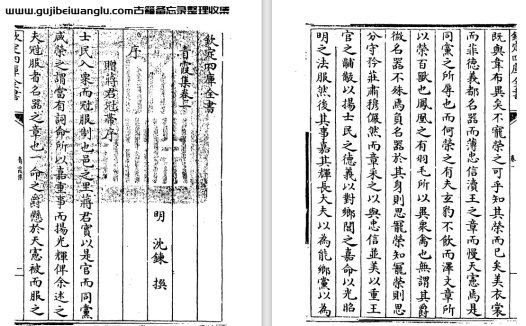 www.gujibeiwanglu.com古籍备忘录整理收集
欽定四庫全書
青霞集卷一
明 沈鍊 撰
序
贈蔣君冠帶序
士民入粟而冠服制也邑之里蔣君實以是官而同黨
咸榮之謂當有詞命所以嘉重事而揚光輝俾余述之
夫冠服者名器之章也一命之爵懸於天憲被而服之
欽定四庫全書
青霞集
既與韋布異矣不寵榮之可乎知其榮而已矣美衣裳
而菲德義都名器而薄忠信瀆王之章而慢天憲焉是
同黨之所辱也而何榮之有夫玄豹不飲而澤文章所
以榮百獸也鳳凰之有羽毛所以異衆禽也無謂其爵
微名器不縁焉負名器於其身則思寵榮知寵榮則思
分守矜莊肅穆儼然而章采之以與忠信並美以重王
官之黼黻以揚士民之德義以對鄉閭之嘉命以光昭
明之法服然後其事嘉其輝長大夫以為能鄉黨以為